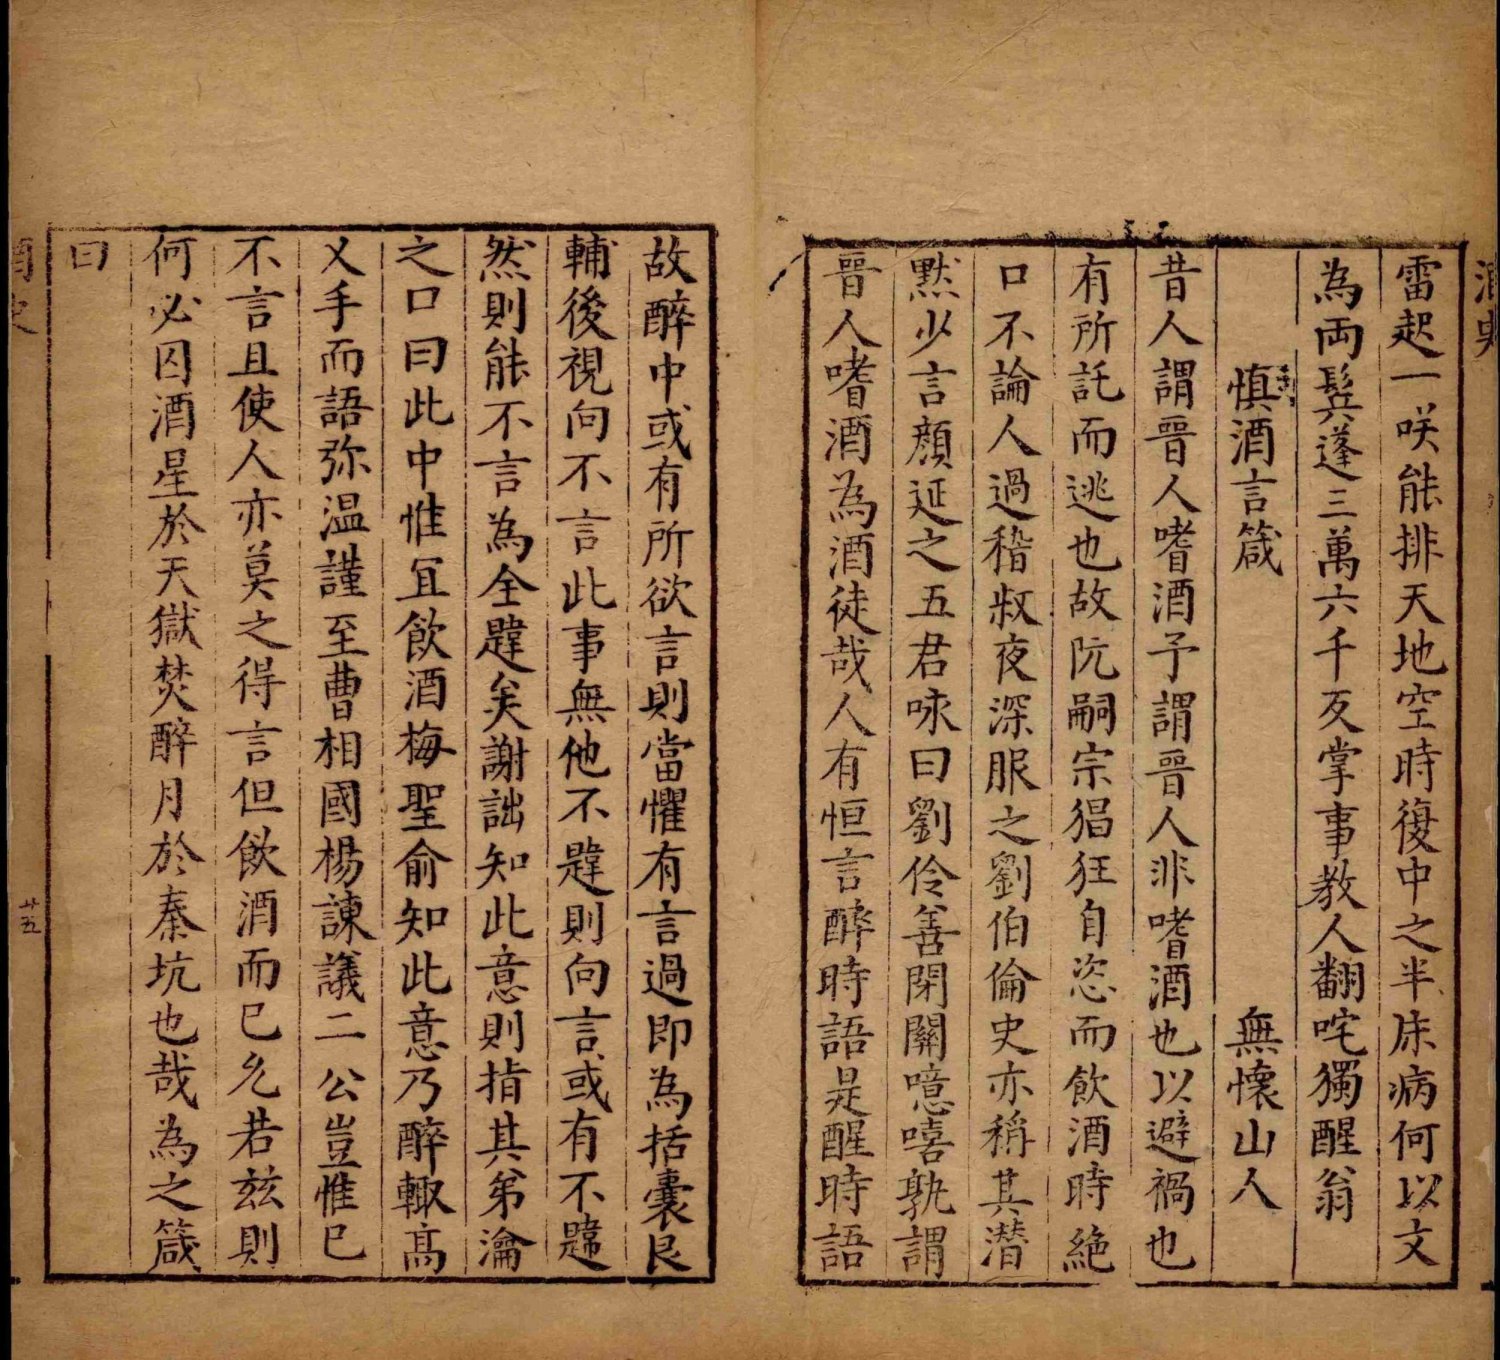 雷起一咲能排天地空時復中之半床病何以文
為両鬂蓬三萬六千友掌事教人翻咤獨醒翁
慎酒言箴 無懷山人
昔人謂晉人嗜酒予謂晉人非嗜酒也以避禍也
有所託而逃也故阮嗣宗猖狂自恣而飲酒時絶
口不論人過稽叔夜深服之劉伯倫史亦稱其潜
黙少言顔延之五君咏曰劉伶善閉關噫嘻孰謂
晉人嗜酒為酒徒哉人有恒言醉時語是醒時語
故醉中或有所欲言則當懼有言過即為括囊艮
輔後視向不言此事無他不韙則向言或有不韙
然則能不言為全韙矣謝詘知此意則指其弟瀹
之口曰此中惟宜飲酒梅聖俞知此意乃醉輙髙
乂手而語弥温謹至曹相國楊諫議二公豈惟已
不言且使人亦莫之得言但飲酒而已允若兹則
何必囚酒星於天獄焚醉月於秦坑也哉為之箴
曰
酒史
廿五